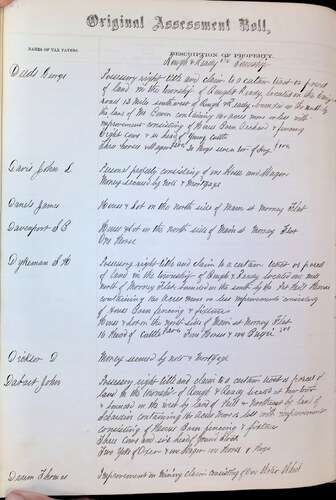 Original Assessment Roll,
NAMES OF TAX PAYERS.
DESCRIPTION OF PROPERTY.
Rough & Ready Township
Deeds George
Possessory right title and claim to a certain tract or parcel
of land in the township of Rough & Ready located on the
road 1½ Miles southwest of Rough & Ready bounded on the north by
the land of Mc containing 160 acres more or less with
improvements consisting of House Barn Orchard & fencing
Eight Cows & 10 head of Young Cattle
Three horses Wagon Hogs seven ton of Hay
Davis John L
Personal property consisting of one Horse and Wagon
Money secured by note & Mortgage
Daniels James
House & Lot on the north side of Main st Mooney Flat
Davenport S B
House & Lot on the north side of Main st Mooney Flat
One Horse
Dyheman S H
Possessory right title and claim to a certain tract or parcel
of land in the township of Rough & Ready located one mile
north of Mooney Flat bounded on the south by the
containing 160 acres more or less improvements consisting
of House Barn fencing & fixtures
House & Lot on the North side of Main st Mooney Flat
16 Head of Cattle Two Horses & one
Dickson D
Money secured by note & Mortgage
John
Possessory right title and claim to a certain tract or parcel of
land in the township of Rough & Ready located at
& bounded on the west by land of & Northeast by land of
containing 160 acres more or less with improvements
consisting of House Barn fencing & fixtures
Three Cows and six head of young stock
Two Yoke of Oxen & one Wagon one Horse Hogs
Thomas
Improvement on mining claim consisting of one Water Wheel